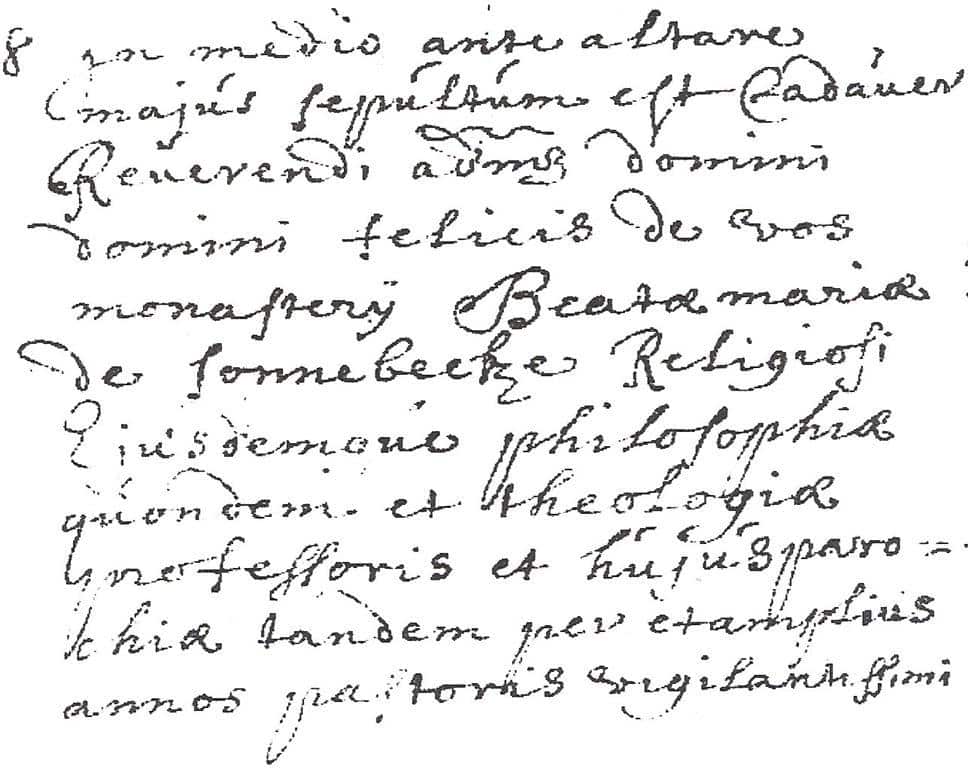 8 in medio ante altare
majus sepultum est Cadaver
Reverendi adm domini
domini felicis de vos
monasterÿ Beatæ mariæ
de sonnebecke Religiosi
Ejusdemque philosophiæ
quondem et theologiæ
professoris et hujus paro=
chiæ tandem per et amplius
annos pastoris vigilantissimi